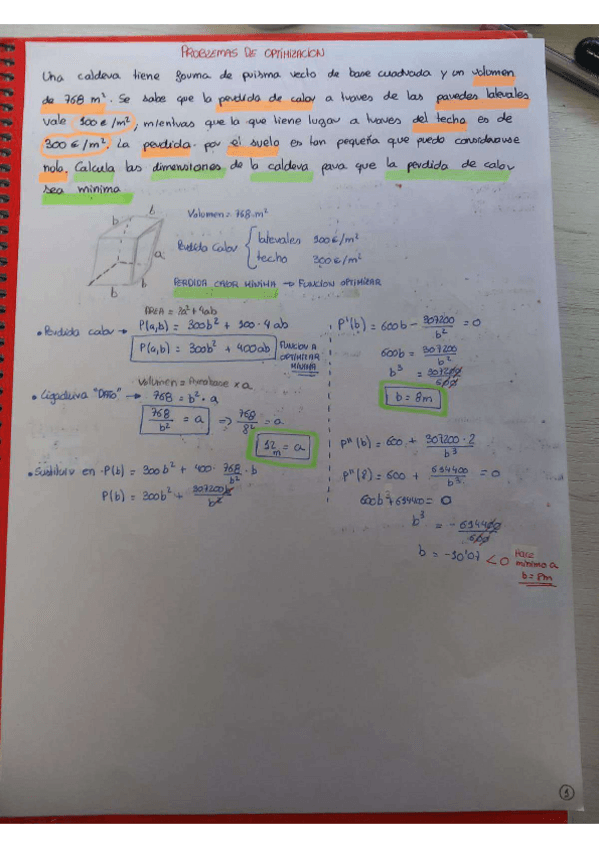 PROBLEMAS DE OPTIMIZACION
Una caldera tiene forma de prisma recto de base cuadrada y un volumen
de 768 m². Se sabe que la perdida de calor a traves de las paredes laterales
vale 100€/m², mientras que la que tiene lugar a traves del techo es de
300€/m². La perdida por el suelo es tan pequeña que puede considerarse
nula. Calcula las dimensiones de la caldera para que la perdida de calor
sea minima
b b
a
b b
Volumen = 768 m²
Perdida Calor
laterales 100€/m²
techo 300€/m²
PERDIDA CALOR MINIMA → FUNCION OPTIMIZAR
AREA = 2a² + 4ab
• Perdida calor → P(a,b) = 300b² + 100·4ab
P(a,b) = 300b² + 400ab
FUNCION A
OPTIMIZAR
MINIMA
Volumen = Area base x a
• Ligadura "DATO" → 768 = b²·a
768/b² = a => 768/8² = a
12 m = a
• Sustituto en P(b) = 300b² + 400· 768/b² ·b
P(b) = 300b² + 307200b/b²
P'(b) = 600b - 307200/b² = 0
600b = 307200/b²
b³ = 307200/600
b = 8m
P''(b) = 600 + 307200·2/b³
P''(8) = 600 + 614400/b³ = 0
600b³ + 614400 = 0
b³ = -614400/600
b = -10'07 < 0
Hace
minimo a
b = 8m
1